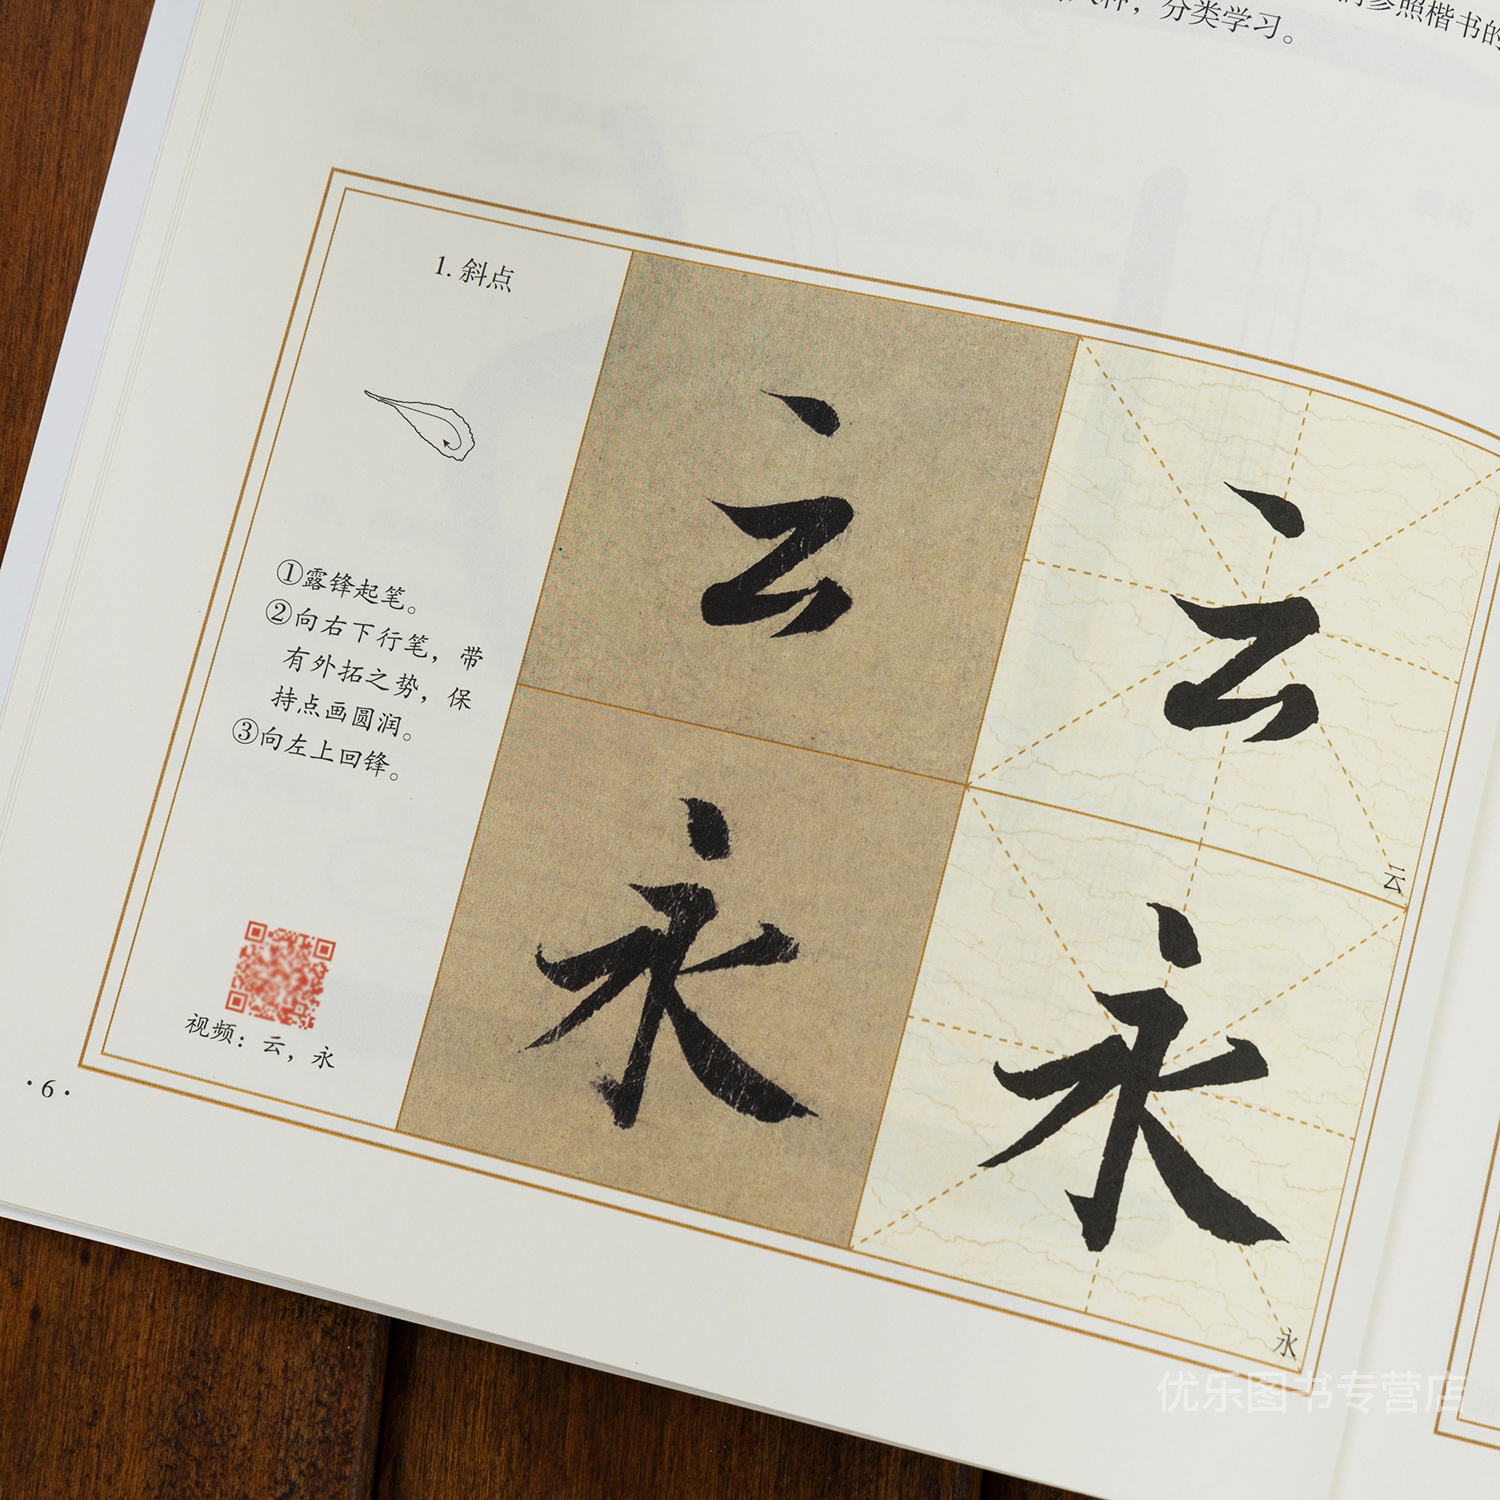 参照楷书的
种，分类学习。
1. 斜点
①露锋起笔。
②向右下行笔，带
有外拓之势，保
持点画圆润。
③向左上回锋。
视频：云，永
云
永
云
永
云
永
·6·
优乐图书专营店